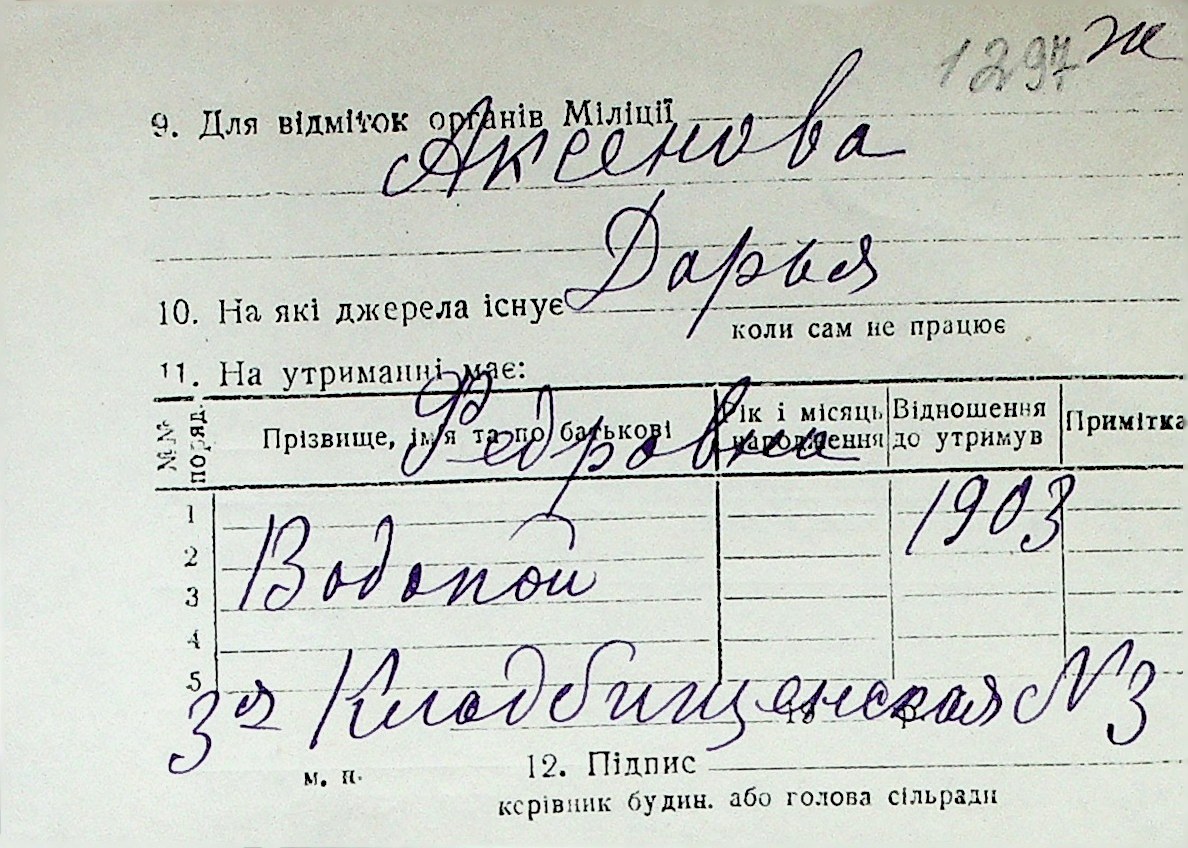 1297 ж
9. Для відміток органів Міліції
Аксенова
Дарья
10. На які джерела існує
коли сам не працює
11. На утриманні має:
Федровна
№№ поряд.
Прізвище, ім'я та по батькові
Рік і місяць народження
Відношення до утримув
Примітка
1
1903
2
Водопой
3
4
5
3я Кладбищенская N 3
19 р.
м. п.
12. Підпис
керівник будин. або голова сільради